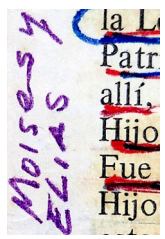 MOISES Y
ELIAS
la L
Patri
allí,
Hijo
Fue
Hijo